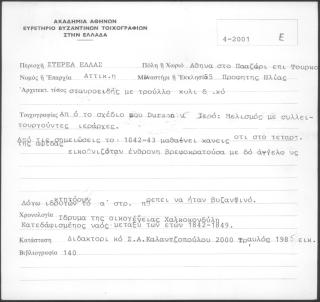 ΑΚΑΔΗΜΙΑ ΑΘΗΝΩΝ
ΕΥΡΕΤΗΡΙΟ ΒΥΖΑΝΤΙΝΩΝ ΤΟΙΧΟΓΡΑΦΙΩΝ
ΣΤΗΝ ΕΛΛΑΔΑ
4-2001 Ε
Περιοχή ΣΤΕΡΕΑ ΕΛΛΑΣ Πόλη ή Χωριό Αθηνα στο Παζάρι επι Τουρκο
Νομός ή Επαρχία Αττικ.η Μοναστήρι ή Εκκλησία Προφητης Ηλίας
Αρχιτεκτ. τύπος σταυροειδής με τρούλλο
Τοιχογραφίες Από το σχέδιο του Durand Ιερό: Μελισμός με συλλει-
τουργούντες ιεράρχες.
Από τις σημειώσεις το: 1842-43 μαθαίνει κανεις οτι στο τεταρτ.
της αψίδας
εικονιζόταν ένθρονη βρεφοκρατούσα με δύο άγγελους
Λόγω ιδρυτών το α' στρ. πρεπει να ήταν βυζαντινό.
Χρονολογία Ιδρυμα της οικογένειας Χαλκοκονδύλη
Κατεδαφισμένος ναός μεταξύ των ετών 1842-1849.
Κατάσταση Διδακτορικό Σ.Α.Καλαντζοπούλου 2000 Τραυλός εικ.
Βιβλιογραφία 140